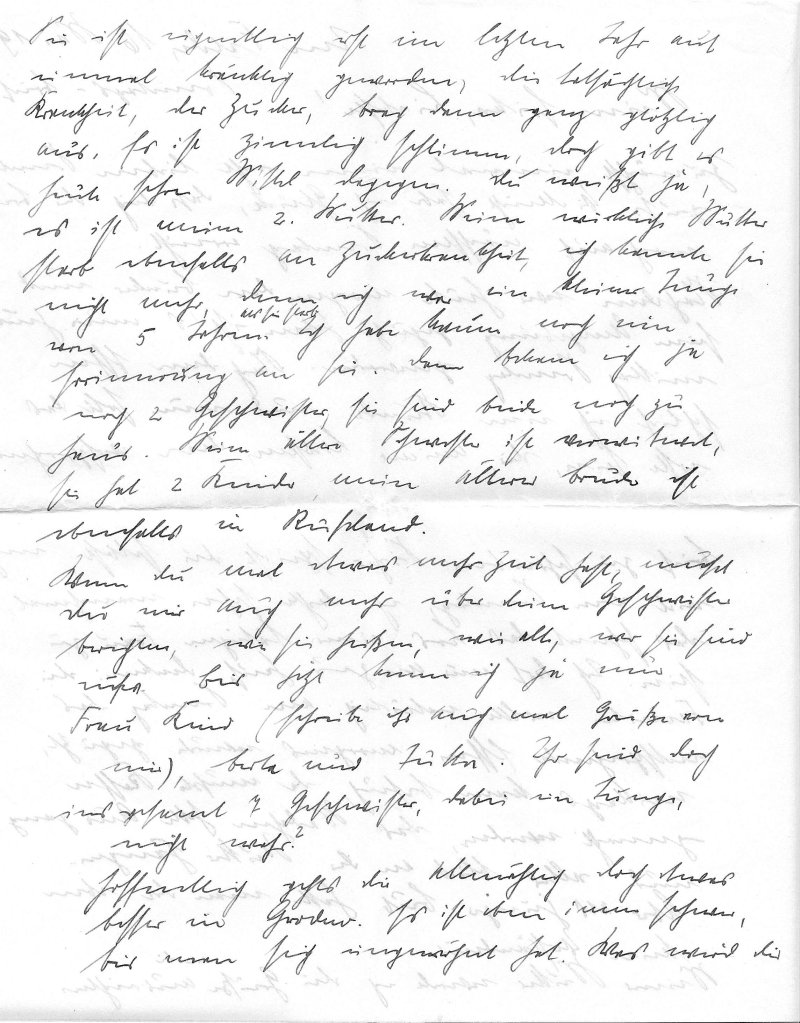 Sie ist eigentlich erst im letzten Jahr auf
einmal kränklig geworden, die tatsächlich
Krankheit, der Zucker, brach dann ganz plötzlich
aus. Es ist ziemlich schlimm, doch gibt es
heute schon Mittel dagegen. Du weißt ja,
es ist meine 2. Mutter. Meine wirkliche Mutter
starb ebenfalls an Zuckerkrankheit, ich kannte sie
nicht mehr, denn ich war ein kleiner Junge
als sie starb
von 5 Jahren. Ich habe kaum noch eine
Erinnerung an sie. Dann bekam ich ja
noch 2 Geschwister, sie sind beide noch zu
Haus. Meine ältere Schwester ist verwitwet,
sie hat 2 Kinder, mein älterer Bruder ist
ebenfalls in Rußland.
Wenn du mal etwas mehr Zeit hast, mußt
du mir auch mehr über deine Geschwister
berichten, wie sie heißen, wie alt, wer sie sind
usw. Bis jetzt kenne ich ja nur
Frau Kind (schreibe ihr auch mal Grüße von
mir), Berta und Jutta. Ihr seid doch
insgesamt 7 Geschwister, dabei ein Junge,
nicht wahr?
Hoffentlich gehts dir allmählich doch etwas
besser in Grodno. Es ist eben immer schwer,
bis man sich eingewöhnt hat. Was wird dir